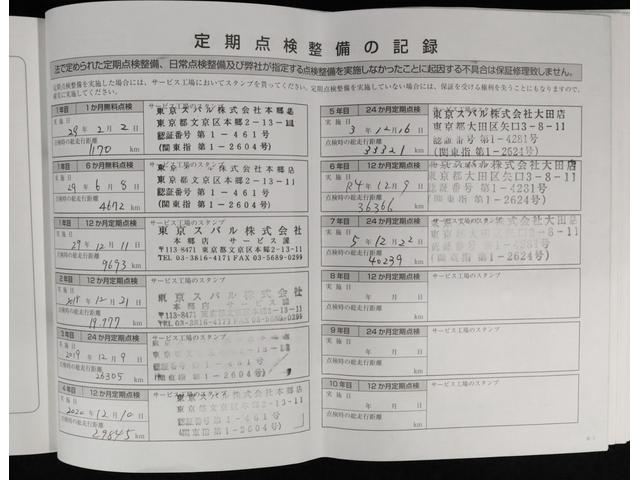 定期点検整備の記録
法で定められた定期点検整備、日常点検整備及び弊社が指定する点検整備を実施しなかったことに起因する不具合は保証修理致しません。
定期点検整備を実施した場合には、サービス工場においてスタンプを貰ってください。定期点検整備を実施していない場合には、保証を受ける権利を失うことにもなりますので、
確実に実施してください。
1年目 1か月無料点検 サービス工場のスタンプ
実施日
29年2月2日
点検時の総走行距離
1170 km
東京スバル株式会社本郷店
東京都文京区本郷2-13-11
認証番号第1-461号
(関東指第1-2604号)
1年目 6か月無料点検 サービス工場のスタンプ
実施日
29年6月8日
点検時の総走行距離
4672 km
東京スバル株式会社本郷店
東京都文京区本郷2-13-11
認証番号第1-461号
(関東指第1-2604号)
1年目 12か月定期点検 サービス工場のスタンプ
実施日
29年12月11日
点検時の総走行距離
9693 km
東京スバル株式会社
本郷店 サービス課
〒113-8471 東京都文京区本郷2-13-11
TEL 03-3816-4171 FAX 03-5689-0299
2年目 12か月定期点検 サービス工場のスタンプ
実施日
2018年12月21日
点検時の総走行距離
19.777 km
東京スバル株式会社
本郷店 サービス課
〒113-8471 東京都文京区本郷2-13-11
TEL 03-3816-4171 FAX 03-5689-0299
3年目 24か月定期点検 サービス工場のスタンプ
実施日
2019年12月9日
点検時の総走行距離
26305 km
4年目 12か月定期点検 サービス工場のスタンプ
実施日
2020年12月10日
点検時の総走行距離
29845 km
東京スバル株式会社本郷店
東京都文京区本郷2-13-11
認証番号第1-461号
(関東指第1-2604号)
5年目 24か月定期点検 サービス工場のスタンプ
実施日
3年12月16日
点検時の総走行距離
33321 km
東京スバル株式会社大田店
東京都大田区矢口3-8-11
認証番号 第1-4281号
(関東指 第1-2624号)
6年目 12か月定期点検 サービス工場のスタンプ
実施日
R4年12月9日
点検時の総走行距離
36366 km
東京スバル株式会社大田店
東京都大田区矢口3-8-11
認証番号 第1-4281号
(関東指 第1-2624号)
7年目 24か月定期点検 サービス工場のスタンプ
実施日
5年12月22日
点検時の総走行距離
40239 km
東京スバル株式会社大田店
東京都大田区矢口3-8-11
認証番号 第1-4281号
(関東指 第1-2624号)
8年目 12か月定期点検 サービス工場のスタンプ
実施日
年 月 日
点検時の総走行距離
km
9年目 24か月定期点検 サービス工場のスタンプ
実施日
年 月 日
点検時の総走行距離
km
10年目 12か月定期点検 サービス工場のスタンプ
実施日
年 月 日
点検時の総走行距離
km